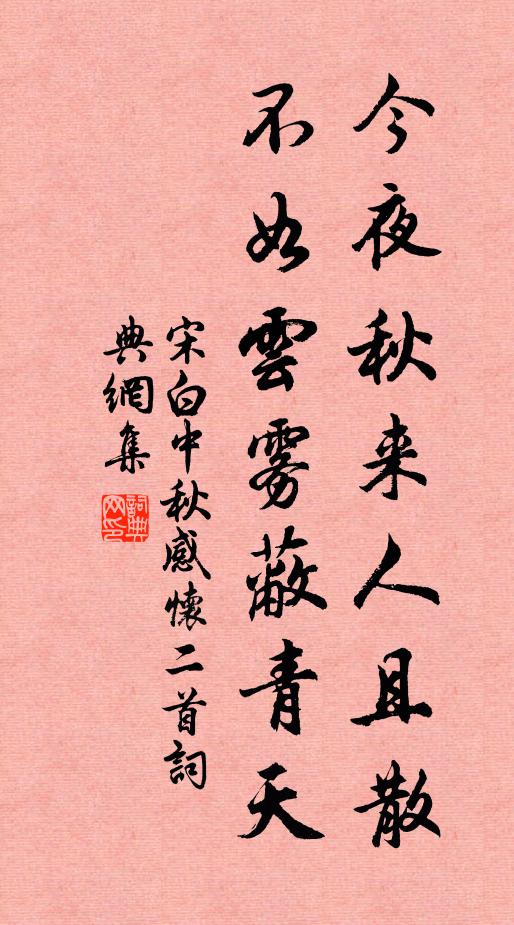 今夜秋来人且散
不如雲雾蔽青天
宋白中秋感懷二首詞
典網集
詞典網印